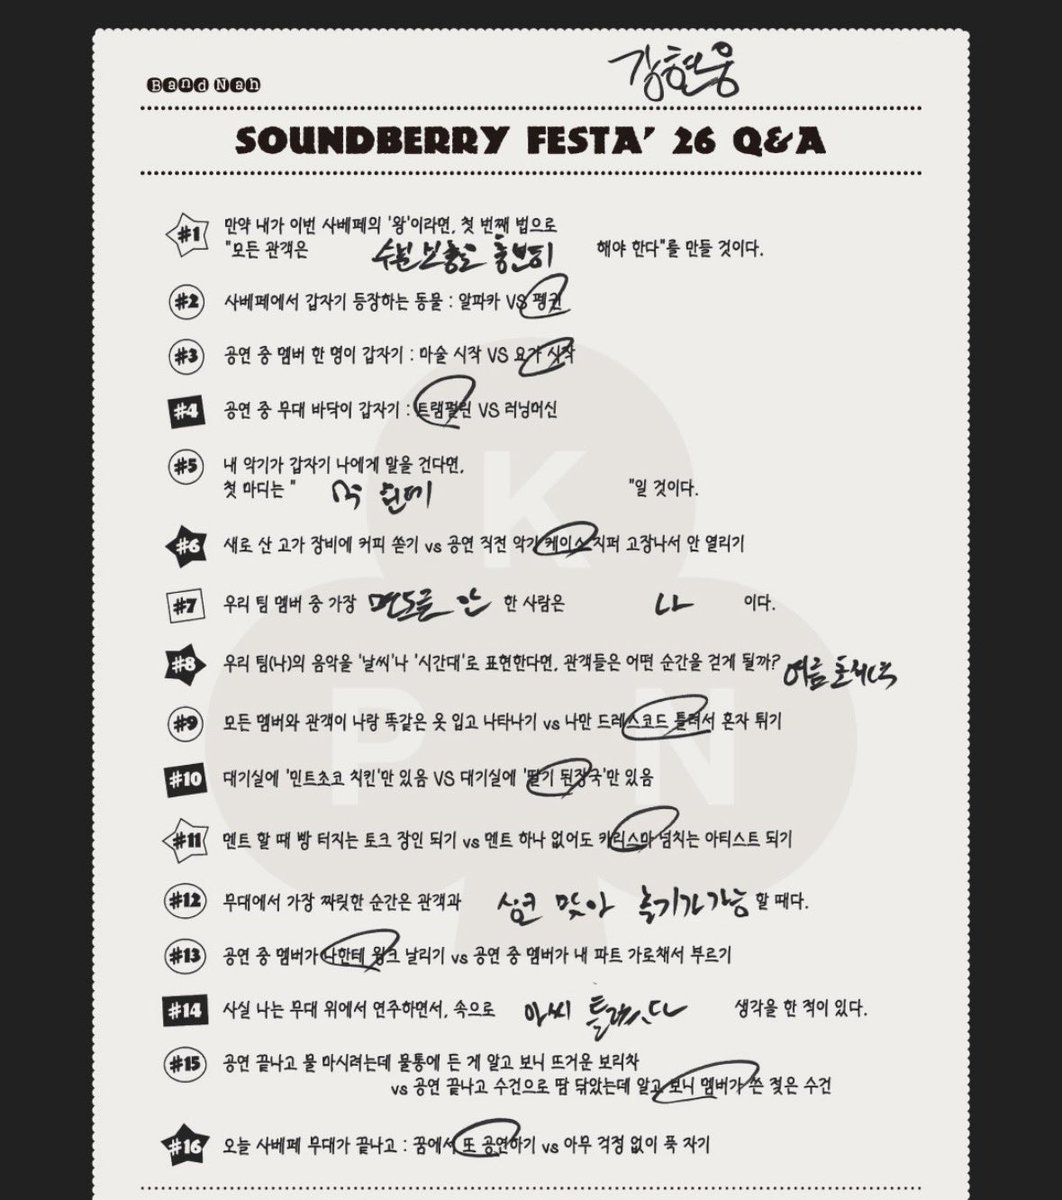 Band Nah
김현웅
SOUNDBERRY FESTA' 26 Q&A
#1 만약 내가 이번 사베페의 '왕'이라면, 첫 번째 법으로
"모든 관객은 수분 보충을 충분히 해야 한다"를 만들 것이다.
#2 사베페에서 갑자기 등장하는 동물 : 알파카 VS 펭귄
#3 공연 중 멤버 한 명이 갑자기 : 마술 시작 VS 요가 시작
#4 공연 중 무대 바닥이 갑자기 : 트램펄린 VS 러닝머신
#5 내 악기가 갑자기 나에게 말을 건다면,
첫 마디는 " "일 것이다.
#6 새로 산 고가 장비에 커피 쏟기 vs 공연 직전 악기 케이스 지퍼 고장나서 안 열리기
#7 우리 팀 멤버 중 가장 면도를 안 한 사람은 나 이다.
#8 우리 팀(나)의 음악을 '날씨'나 '시간대'로 표현한다면, 관객들은 어떤 순간을 걷게 될까? 여름
#9 모든 멤버와 관객이 나랑 똑같은 옷 입고 나타나기 vs 나만 드레스코드 틀려서 혼자 튀기
#10 대기실에 '민트초코 치킨'만 있음 VS 대기실에 '딸기 된장국'만 있음
#11 멘트 할 때 빵 터지는 토크 장인 되기 vs 멘트 하나 없어도 카리스마 넘치는 아티스트 되기
#12 무대에서 가장 짜릿한 순간은 관객과 맞아 할 때다.
#13 공연 중 멤버가 나한테 윙크 날리기 vs 공연 중 멤버가 내 파트 가로채서 부르기
#14 사실 나는 무대 위에서 연주하면서, 속으로 아씨 틀렸다 생각을 한 적이 있다.
#15 공연 끝나고 물 마시려는데 물통에 든 게 알고 보니 뜨거운 보리차
vs 공연 끝나고 수건으로 땀 닦았는데 알고 보니 멤버가 쓴 젖은 수건
#16 오늘 사베페 무대가 끝나고 : 꿈에서 또 공연하기 vs 아무 걱정 없이 푹 자기
K
P N